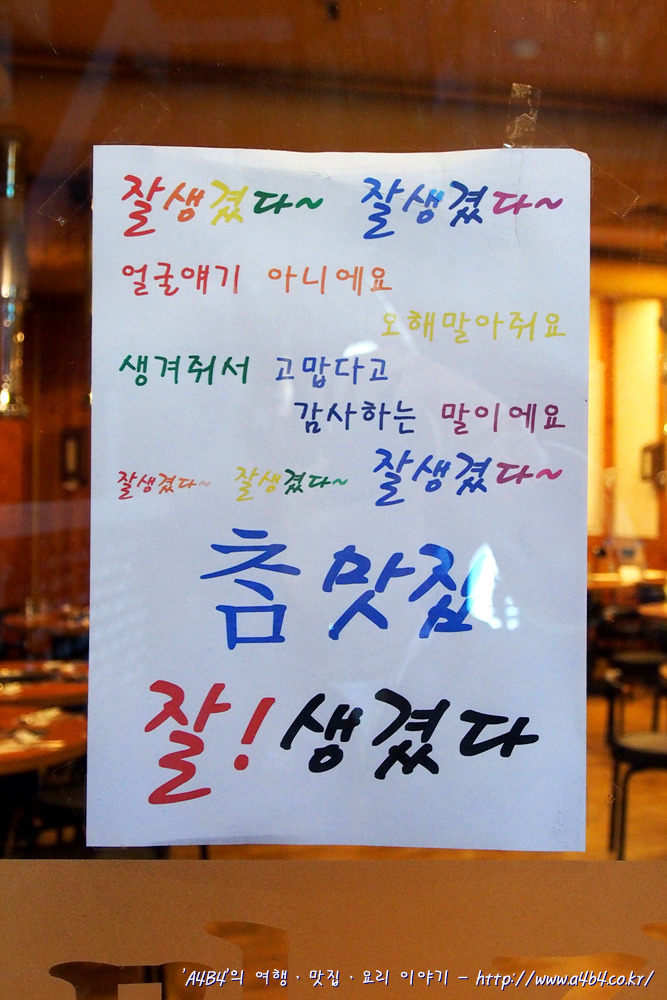 잘생겼다~ 잘생겼다~
얼굴얘기 아니에요
오해말아줘요
생겨줘서 고맙다고
감사하는 말이에요
잘생겼다~ 잘생겼다~ 잘생겼다~
춈맛집
잘!생겼다
'A4B4'의 여행·맛집·요리 이야기 - http://www.a4b4.co.kr/